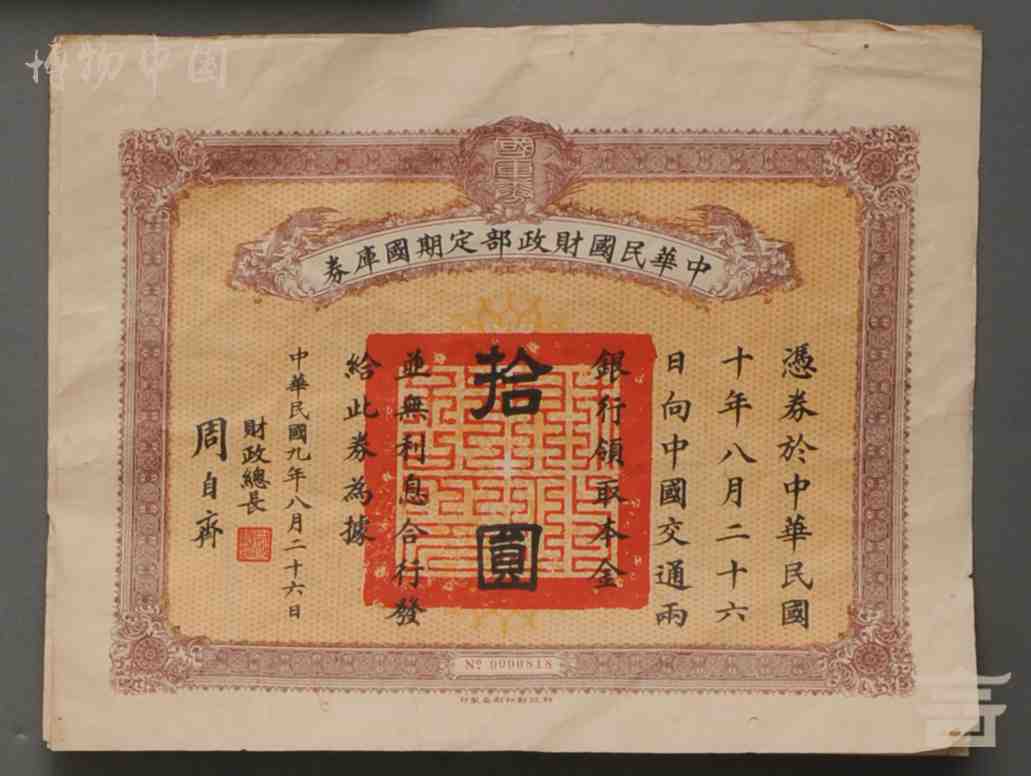 博物中国
國庫券
中華民國財政部定期國庫券
憑券於中華民國
十年八月二十六
日向中國交通兩
銀行領取本金
拾圓
並無利息合行發
給此券為據
中華民國九年八月二十六日
財政總長
周自齊
No 0000818